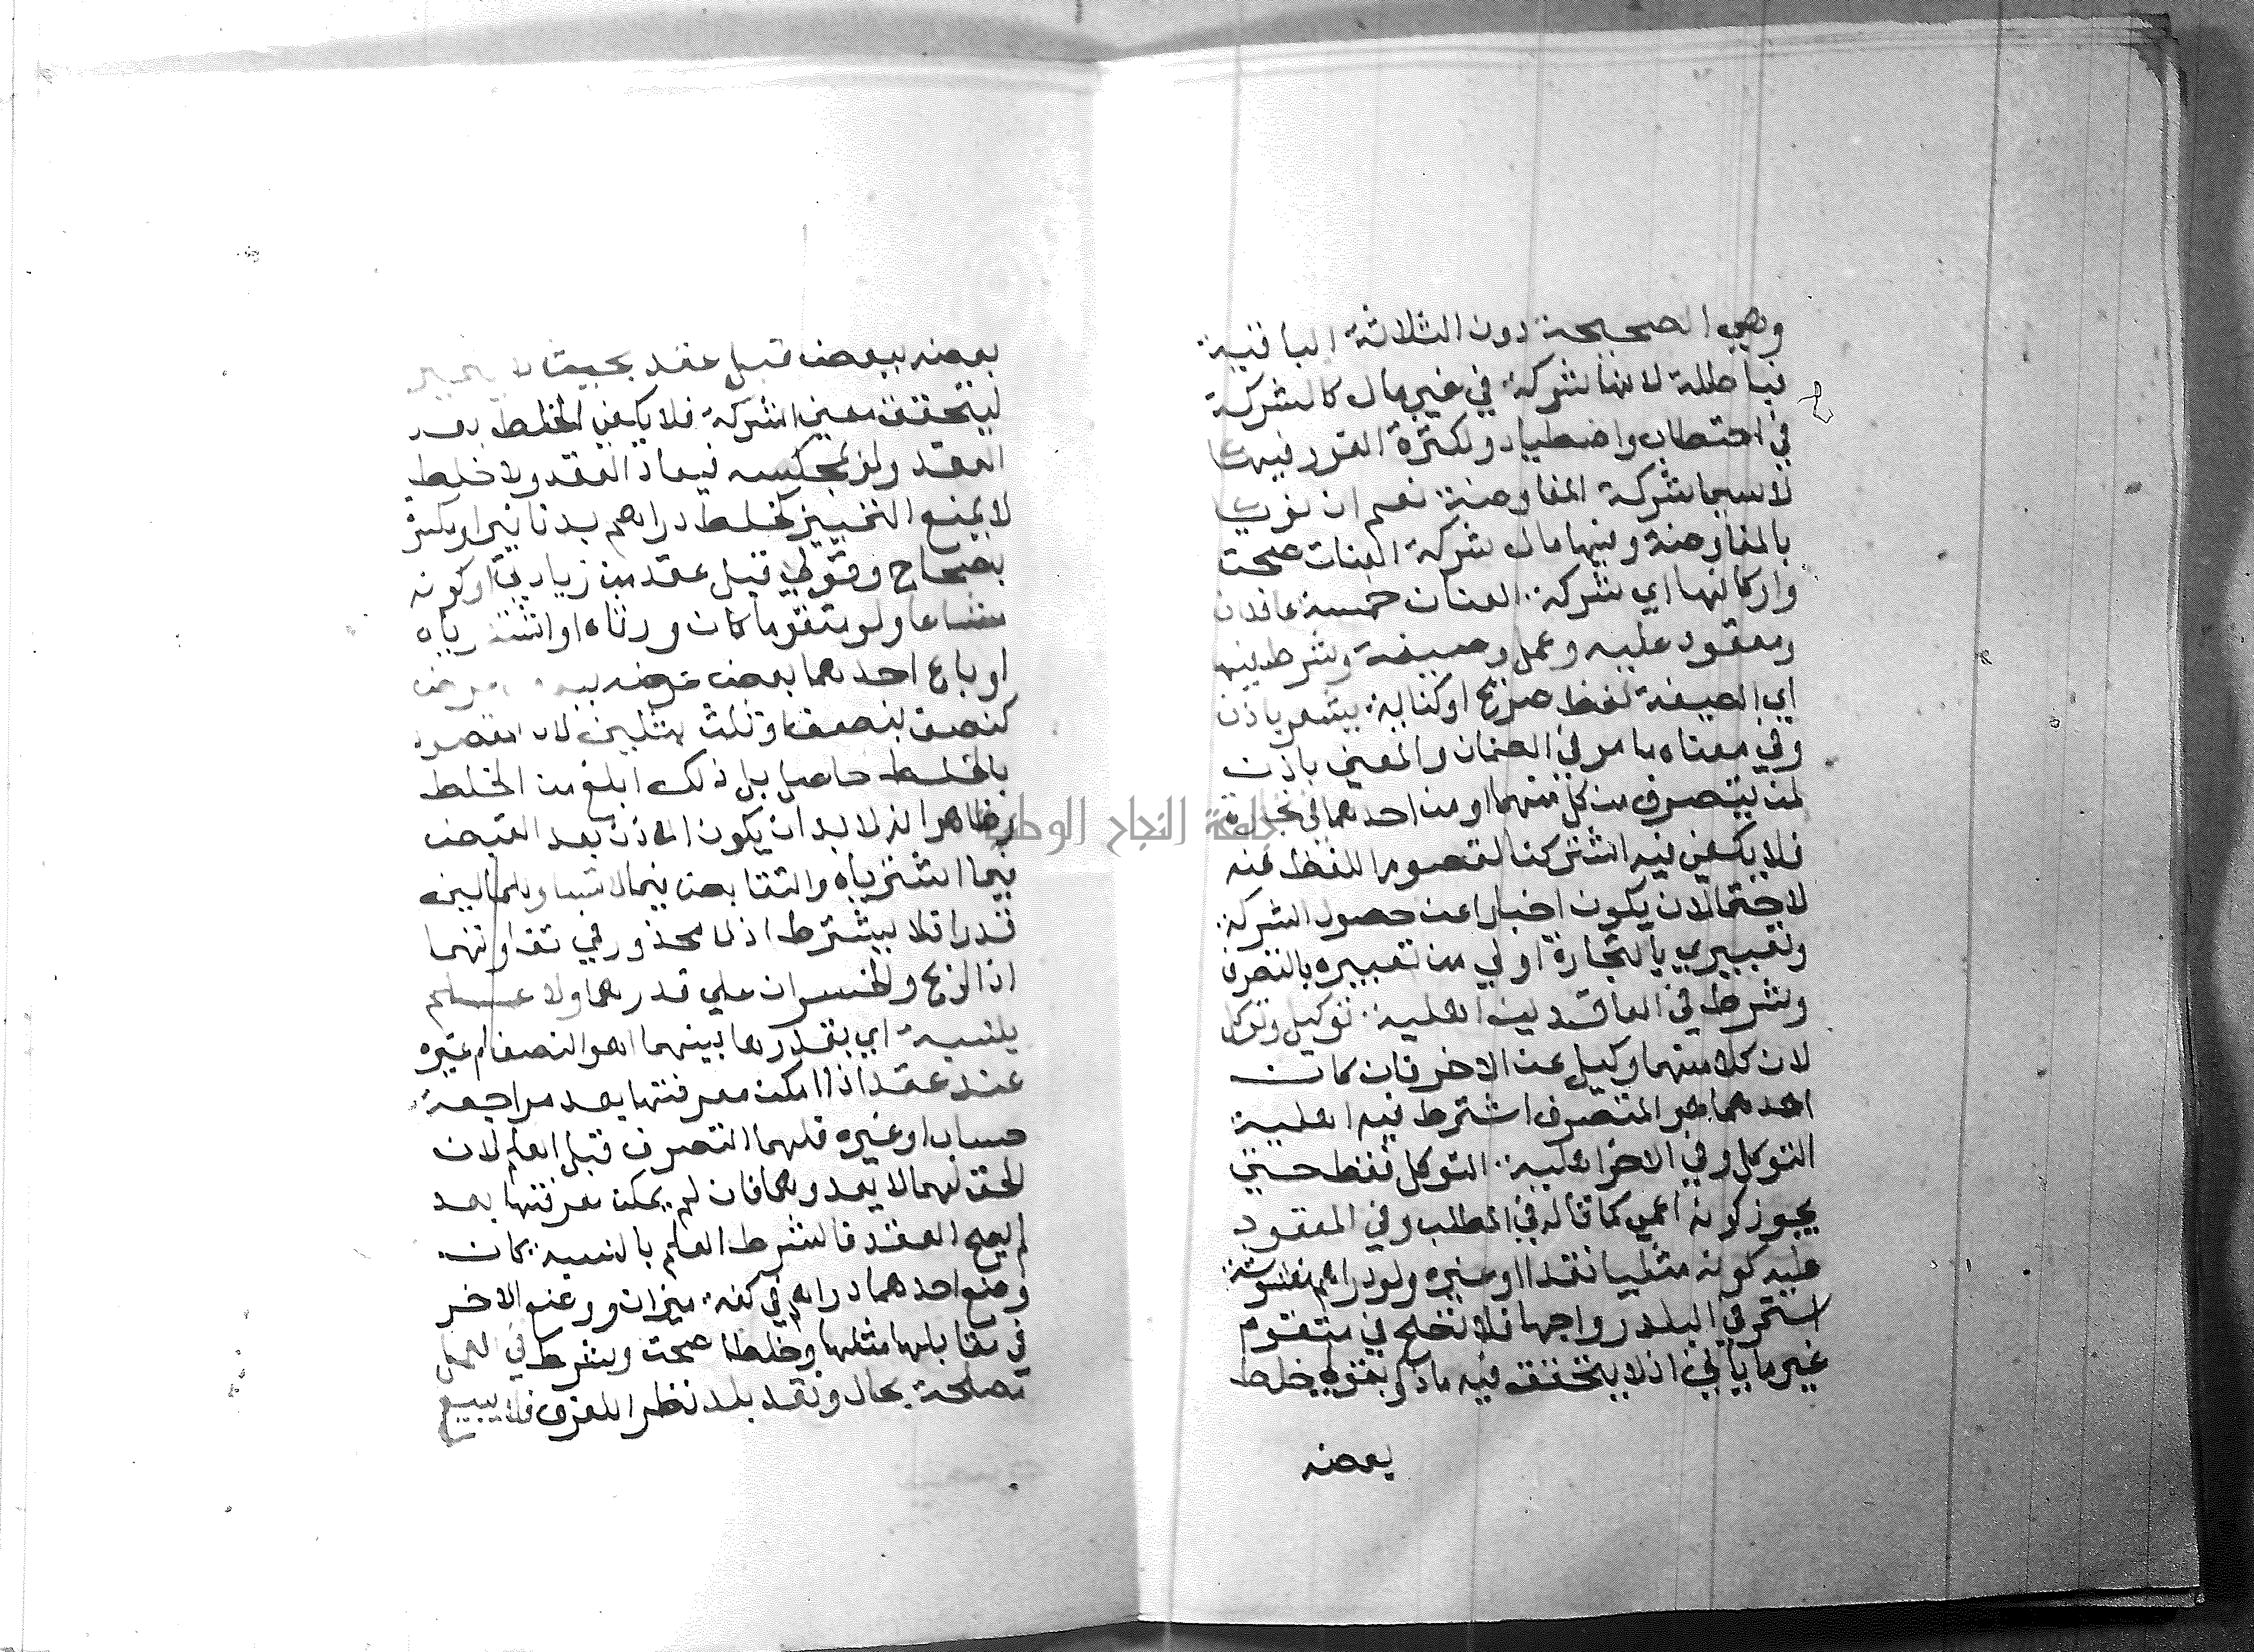 وهي الصحيحة دون الثلاثة الباقية
فباطلة لانها شركة في غير مال كالشركة
في احتطاب واصطياد ولكثرة الغرر فيها
لاسيما شركة المفاوضة نعم ان نويا
بالمفاوضة وفيها مال شركة العنان صحت
واركانها اي شركة العنان خمسة عاقدان
ومعقود عليه وعمل وصيغة وشرط فيها
اي الصيغة لفظ صريح او كناية يشعر باذن
وفي معناه ما مر في الضمان والمعني باذن
لمن يتصرف من كل منهما او من احدهما في تجارة
فلا يكفي فيه اشتركنا لقصور اللفظ عنه
لاحتمال ان يكون اخبارا عن حصول الشركة
وتعبيري بالتجارة اولي من تعبيره بالتصرف
وشرط في العاقدين اهلية توكيل وتوكل
لان كلا منهما وكيل عن الاخر فان كان
احدهما هو المتصرف اشترط فيه اهلية
التوكل وفي الاخر اهلية التوكل فقط حتي
يجوز كونه اعمي كما قاله في المطلب وفي المعقود
عليه كونه مثليا نقدا او غيره ولو دراهم مغشوشة
استمر في البلد رواجها فلا تصح في متقوم
غير ما ياتي اذ لا يتحقق فيه ما ذكر بقولي خلط
بعضه
بعضه ببعض قبل عقد بحيث لا يتميز
ليتحقق معني الشركة فلا يكفي الخلط بعد
العقد ولا بمجلسه فيعاد العقد ولا خلط
لا يمنع التمييز كخلط دراهم بدنانير او مكسر
بصحاح وقولي قبل عقد من زيادتي او كونه
مشاعا ولو متقوما كان ورثاه او اشترياه
او باع احدهما بعض عرضه ببعض عرض
كنصف بنصف او ثلث بثلثين لان المقصود
بالخلط حاصل بل ذلك ابلغ من الخلط
وظاهر انه لابد ان يكون الاذن بعد القبض
فيما اشترياه والتقابض فيما لا تساو للمالين
قدرا فلا يشترط اذ لا محذور في تفاوتهما
اذ الربح والخسران علي قدرهما ولا علم
بنسبة اي بقدرها بينهما اهو النصف ام غيره
عند عقد اذا امكن معرفتها بعد مراجعة
حساب او غيره فلهما التصرف قبل العلم لان
الحق لهما لا يعدوهما فان لم يمكن معرفتها بعد
لم يصح العقد فالشرط العلم بالنسبة بان
وضع احدهما دراهم في كفة ميزان ووضع الاخر
في مقابلها مثلها وخلطا صحت وشرط في العمل
مصلحة بحال ونقد بلد نظرا للعرف فلا يبيع
جامعة النجاح الوطنية